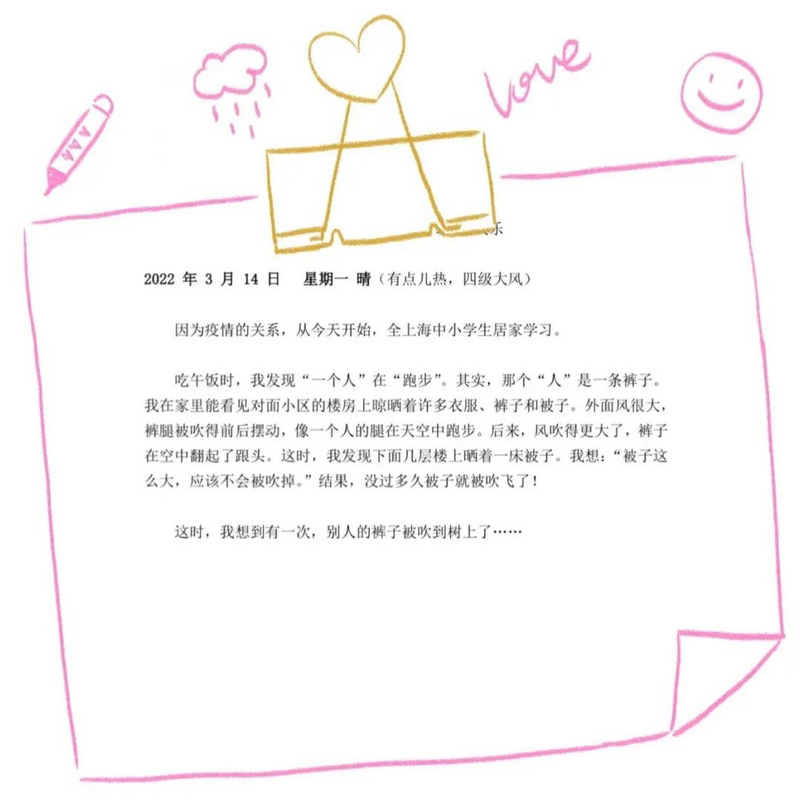 Love
乐
2022 年 3 月 14 日 星期一 晴（有点儿热，四级大风）
因为疫情的关系，从今天开始，全上海中小学生居家学习。
吃午饭时，我发现“一个人”在“跑步”。其实，那个“人”是一条裤子。
我在家里能看见对面小区的楼房上晾晒着许多衣服、裤子和被子。外面风很大，
裤腿被吹得前后摆动，像一个人的腿在天空中跑步。后来，风吹得更大了，裤子
在空中翻起了跟头。这时，我发现下面几层楼上晒着一床被子。我想：“被子这
么大，应该不会被吹掉。”结果，没过多久被子就被吹飞了！
这时，我想到有一次，别人的裤子被吹到树上了……